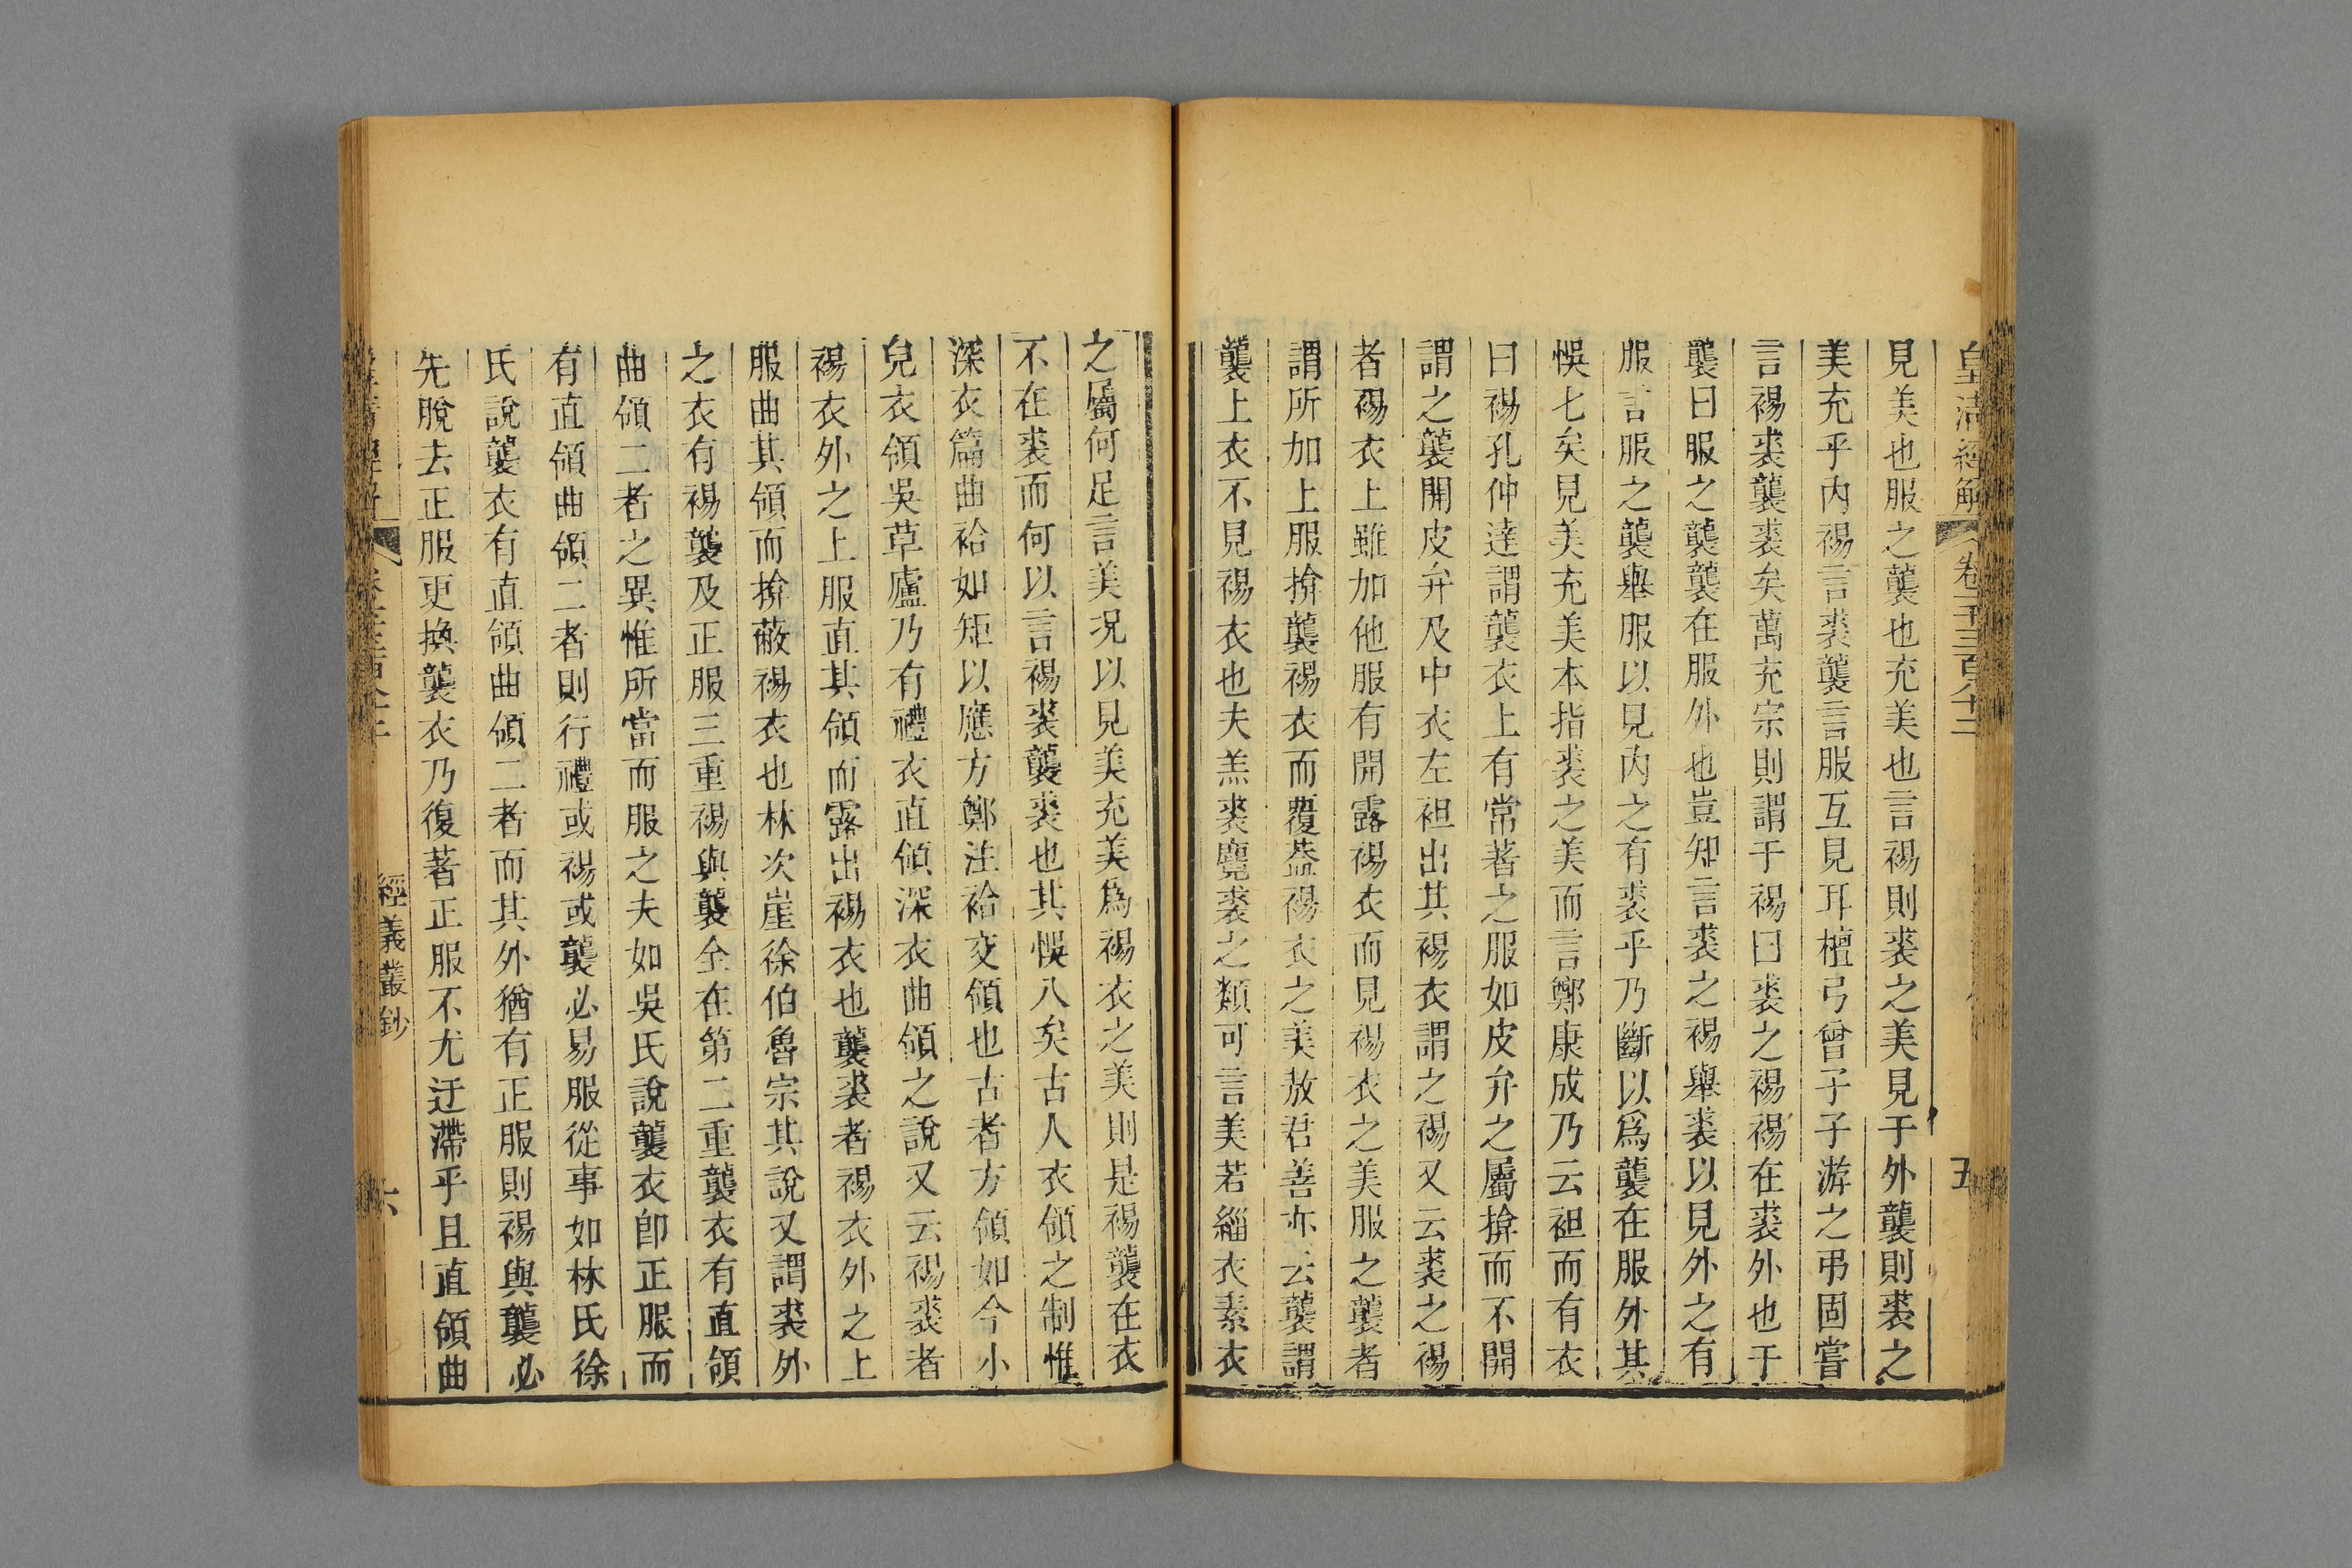 皇清經解
卷一千三百八十三
五
見美也服之襲也充美也言裼則裘之美見于外襲則裘之
美充乎內裼言裘襲言服互見耳檀弓曾子子游之弔固嘗
言裼裘襲裘矣萬充宗則謂于裼曰裘之裼裼在裘外也于
襲曰服之襲襲在服外也豈知言裘之裼舉裘以見外之有
服言服之襲舉服以見內之有裘乎乃斷以爲襲在服外其
悞七矣見美充美本指裘之美而言鄭康成乃云袒而有衣
曰裼孔仲達謂襲衣上有常著之服如皮弁之屬揜而不開
謂之襲開皮弁及中衣左袒出其裼衣謂之裼又云裘之裼
者裼衣上雖加他服有開露裼衣而見裼衣之美服之襲者
謂所加上服揜襲裼衣而覆葢裼衣之美敖君善亦云襲謂
襲上衣不見裼衣也夫羔裘麑裘之類可言美若緇衣素衣
之屬何足言美况以見美充美爲裼衣之美則是裼襲在衣
不在裘而何以言裼裘襲裘也其悞八矣古人衣領之制惟
深衣篇曲袷如矩以應方鄭注袷交領也古者方領如今小
兒衣領吳草廬乃有禮衣直領深衣曲領之說又云裼裘者
裼衣外之上服直其領而露出裼衣也襲裘者裼衣外之上
服曲其領而揜蔽裼衣也林次崖徐伯魯宗其說又謂裘外
之衣有裼襲及正服三重裼與襲全在第二重襲衣有直領
曲領二者之異惟所當而服之夫如吳氏說襲衣卽正服而
有直領曲領二者則行禮或裼或襲必易服從事如林氏徐
氏說襲衣有直領曲領二者而其外猶有正服則裼與襲必
先脫去正服更換襲衣乃復著正服不尤迂滯乎且直領曲
經義叢鈔
六